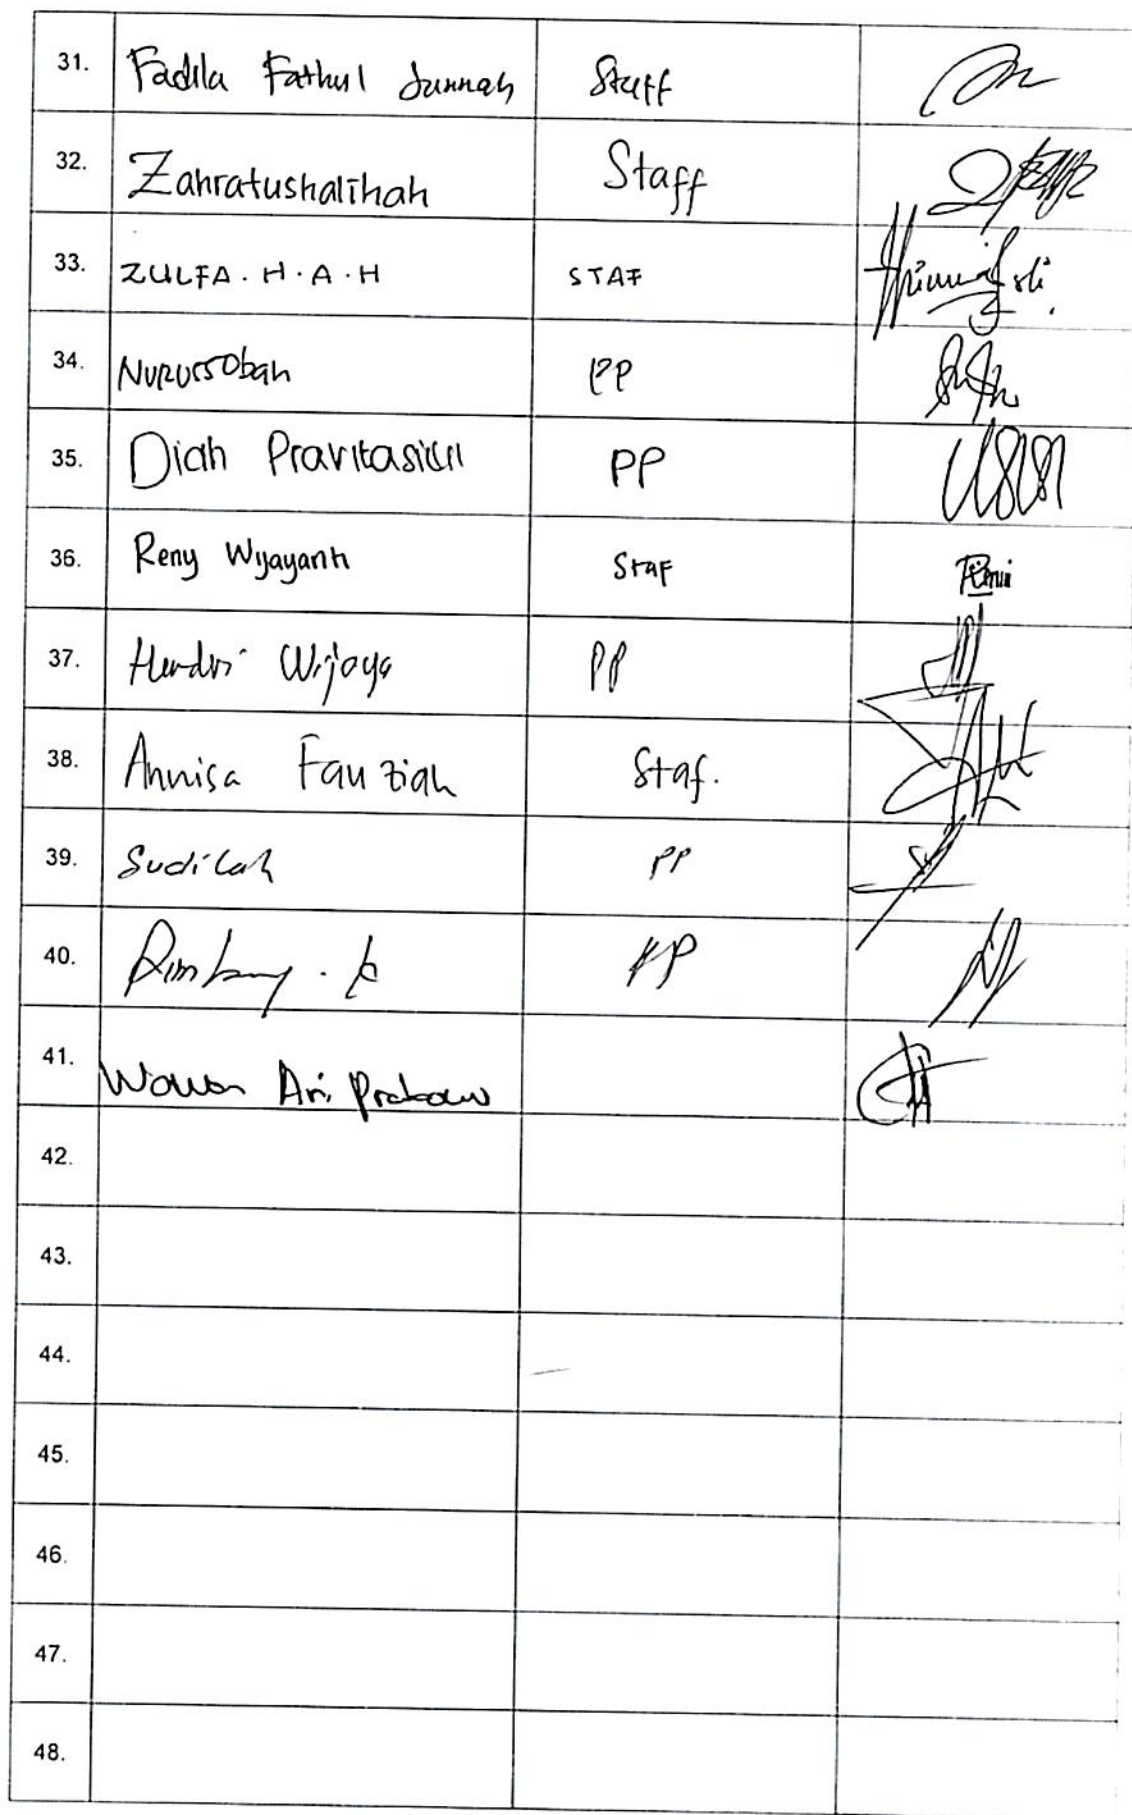 31. Fadila Fathul Jannah Staff
32. Zahratushalihah Staff
33. ZULFA . H . A . H STAF
34. Nurussobah PP
35. Diah Pravitasari PP
36. Reny Wijayanti Staf
37. Hendri Wijaya PP
38. Annisa Fauziah Staf.
39. Sudilah PP
40.
41. Wawan Ari
42.
43.
44.
45.
46.
47.
48.